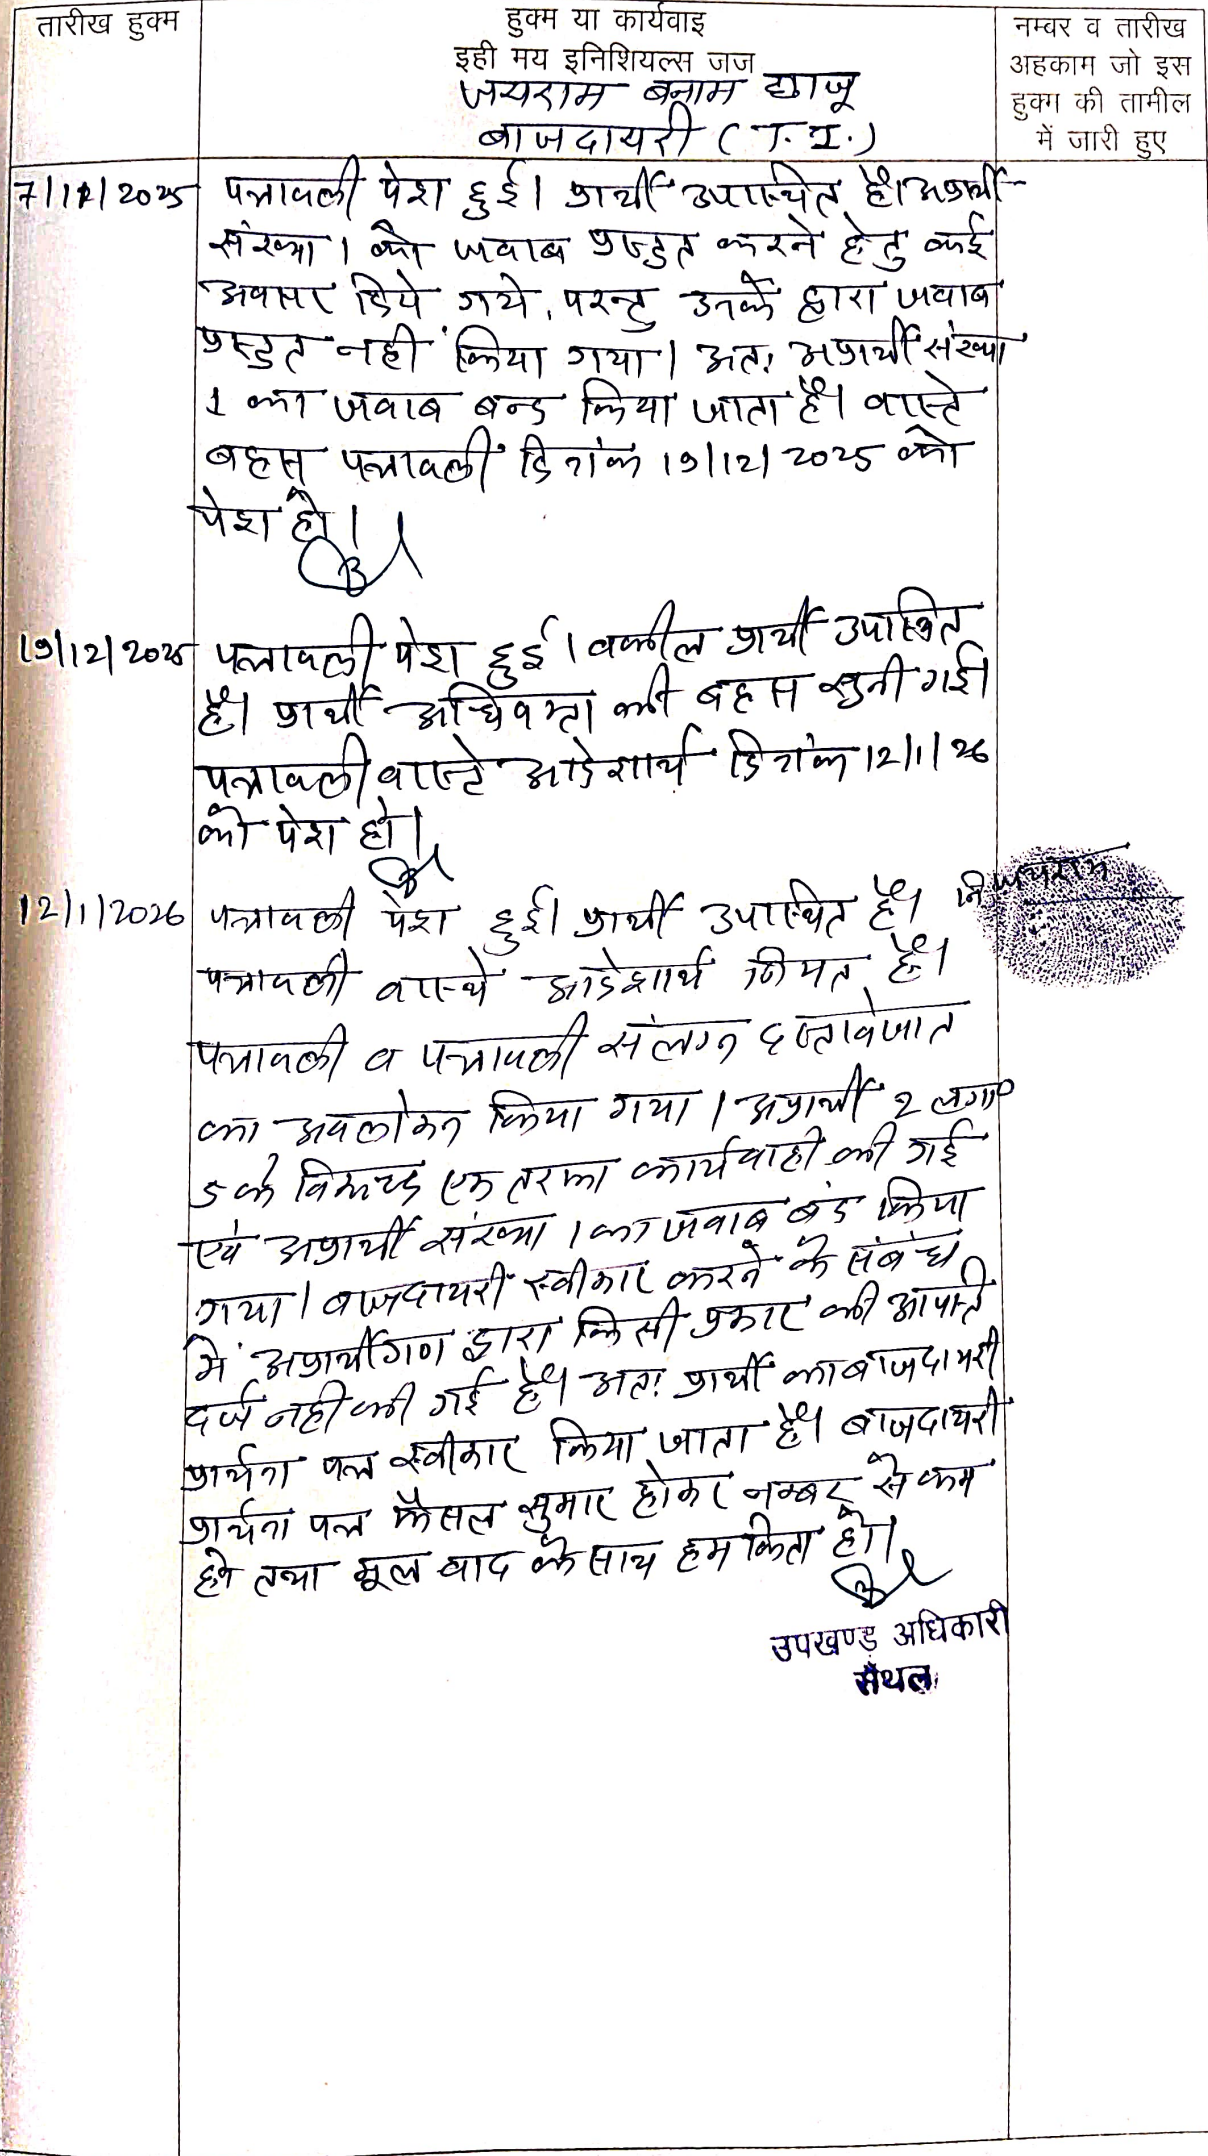 तारीख हुक्म
हुक्म या कार्यवाइ
इही मय इनिशियल्स जज
नम्वर व तारीख
अहकाम जो इस
हुक्म की तामील
में जारी हुए
जयराम बनाम छाजू
बाजदायरी (T.I.)
7/11/2025 पत्रावली पेश हुई। प्रार्थी उपास्थित है। अप्रार्थी
संख्या 1 को जवाब प्रस्तुत करने हेतु कई
अवसर दिये गये, परन्तु उनके द्वारा जवाब
प्रस्तुत नहीं किया गया। अतः अप्रार्थी संख्या
1 का जवाब बन्द किया जाता है। वास्ते
बहस पत्रावली दिनांक 19/12/2025 को
पेश हो।
19/12/2025 पत्रावली पेश हुई। वकील प्रार्थी उपास्थित
है। प्रार्थी अधिवक्ता की बहस सुनी गई।
पत्रावली वास्ते आदेशार्थ दिनांक 12/1/26
को पेश हो।
12/1/2026 पत्रावली पेश हुई। प्रार्थी उपास्थित है। नि जयराम
पत्रावली वास्ते आदेशार्थ नियत है।
पत्रावली व पत्रावली संलग्न दस्तावेजात
का अवलोकन किया गया। अप्रार्थी 2 लगा०
5 के विरूद्ध एक तरफा कार्यवाही की गई
एवं अप्रार्थी संख्या 1 का जवाब बंद किया
गया। बाजदायरी स्वीकार करने के संबंध
में अप्रार्थीगण द्वारा किसी प्रकार की आपत्ति
दर्ज नही की गई है। अतः प्रार्थी का बाजदायरी
प्रार्थना पत्र स्वीकार किया जाता है। बाजदायरी
प्रार्थना पत्र फैसल सुमार होकर नम्बर से कम
हो तथा मूल वाद के साथ हम किता हो।
उपखण्ड अधिकारी
सैंथल